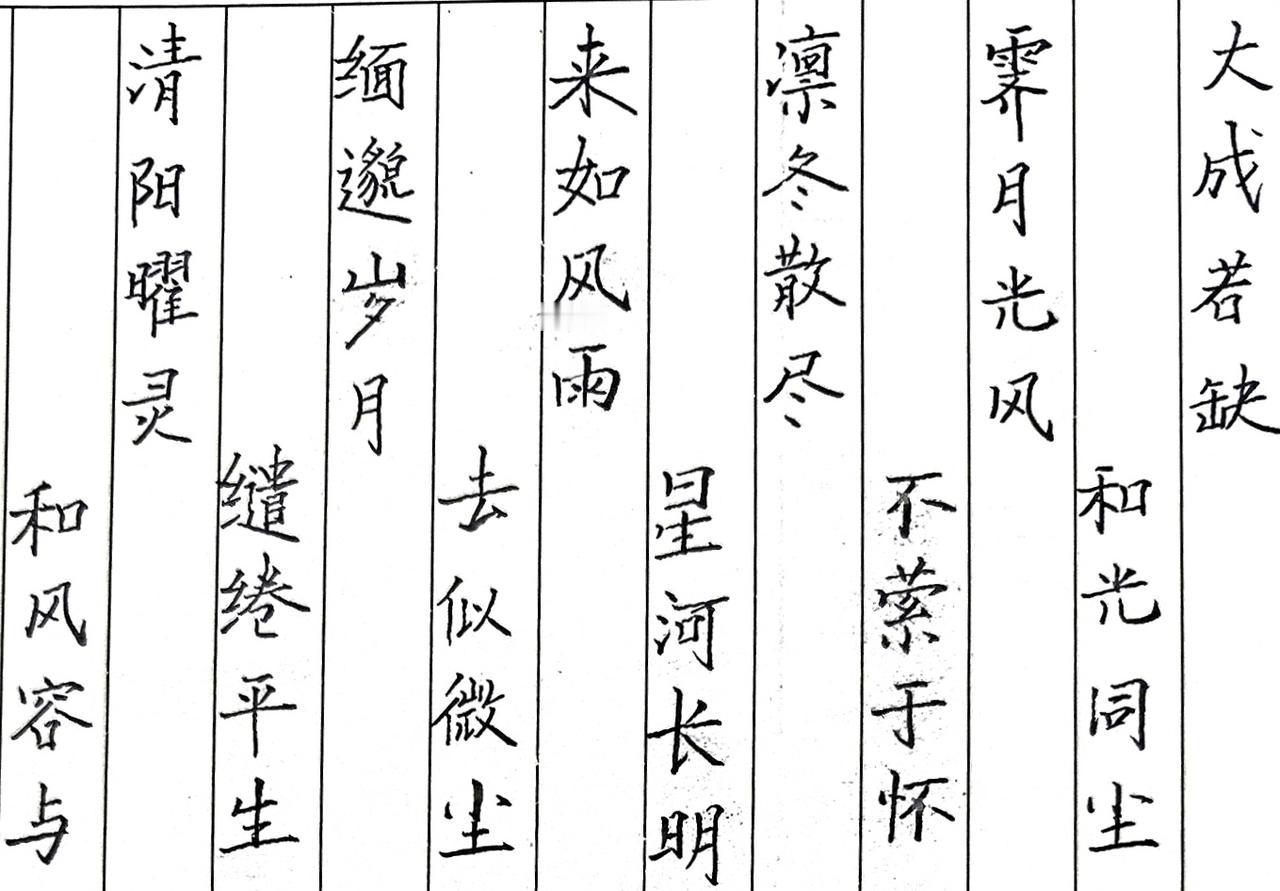 大成若缺
和光同尘
霁月光风
不萦于怀
凛冬散尽
星河长明
来如风雨
去似微尘
缅邈岁月
缱绻平生
清阳曜灵
和风容与